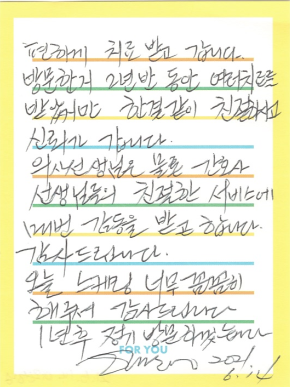 편하게 치료 받고 갑니다.
방문한거 2년 반 동안 여러치료를
받았지만 한결같이 친절하시고
신뢰가 갑니다.
의사선생님은 물론 간호사
선생님들의 친절한 서비스에
매번 감동을 받고 합니다.
감사드립니다.
오늘 스케링 너무 꼼꼼히
해주셔 감사드립니다
1년후 정기 방문하겠습니다
FOR YOU
2021
6. 14